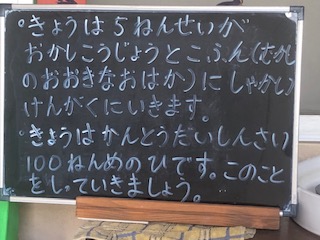 。きょうは5ねんせいが
おかしこうじょうとこふん(むかし
のおおきなおはか)にしゃかい
けんがくにいきます。
。きょうはかんとうだいしんさい
100ねんめのひです。このこと
をしっていきましょう。